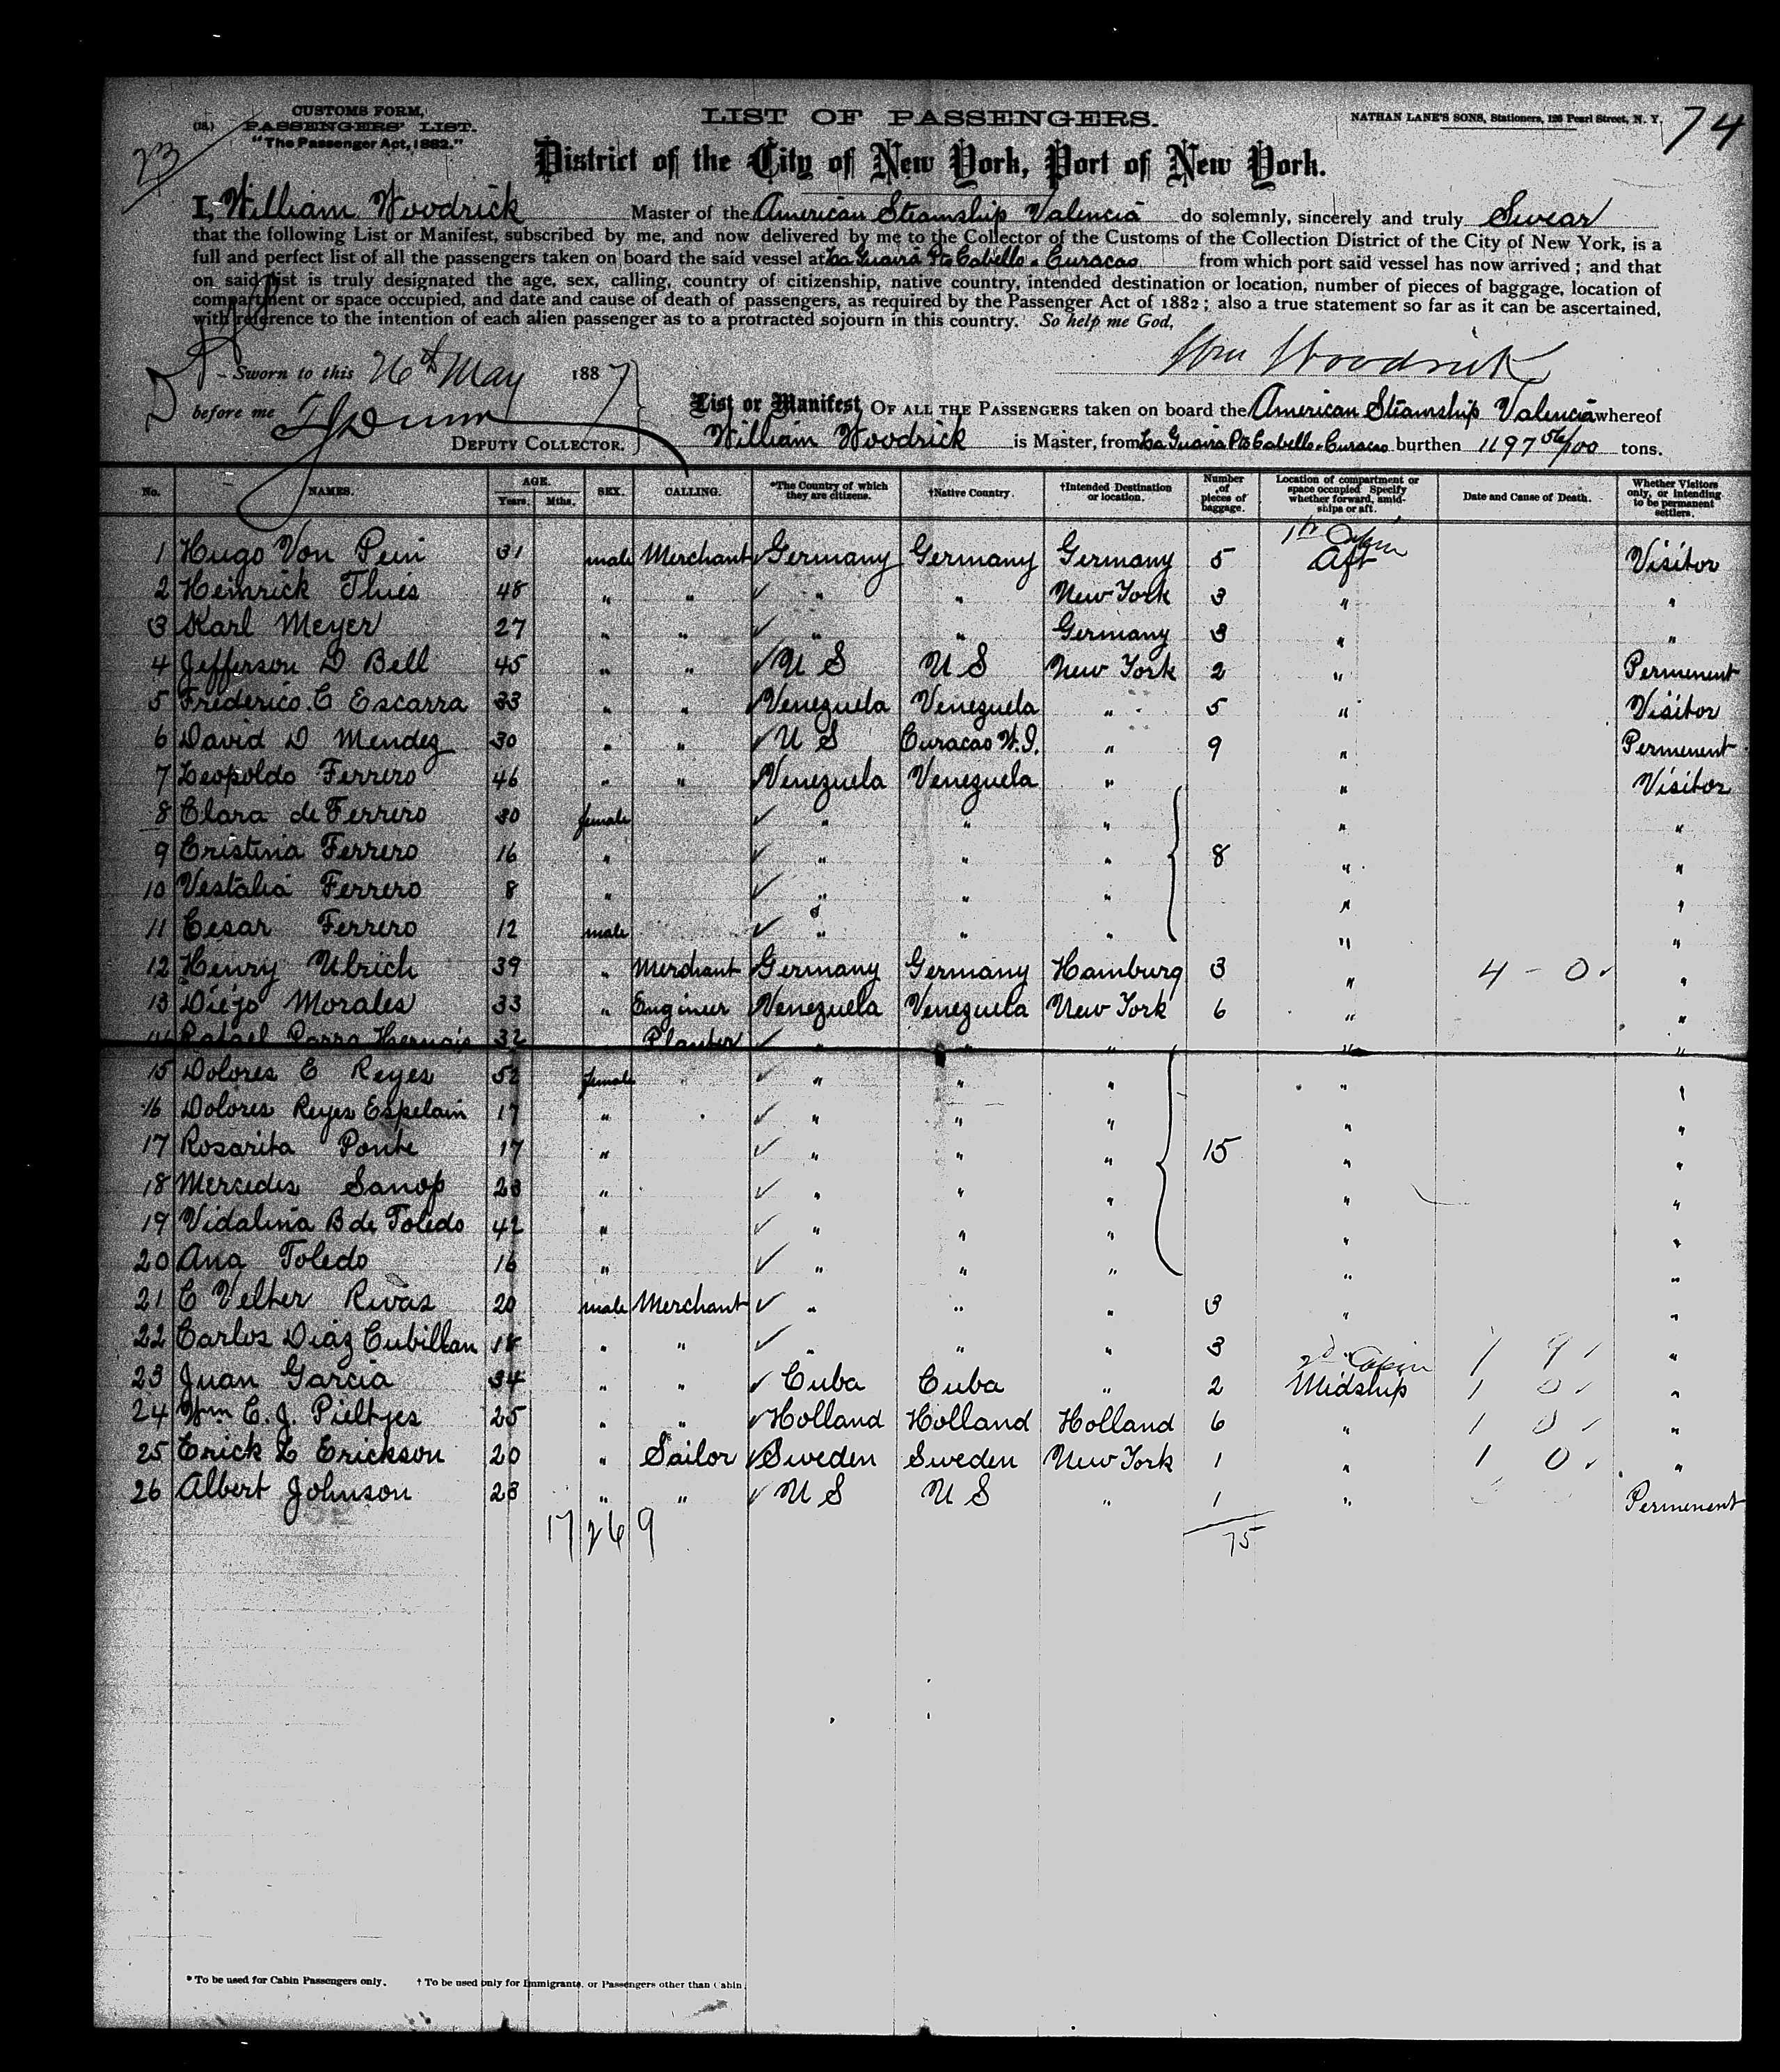 CUSTOMS FORM,
PASSENGERS' LIST.
"The Passenger Act, 1882."
23
LIST OF PASSENGERS.
NATHAN LANE'S SONS, Stationers, 126 Pearl Street, N. Y.
74
District of the City of New York, Port of New York.
I, William Woodrick Master of the American Steamship Valencia do solemnly, sincerely and truly Swear
that the following List or Manifest, subscribed by me, and now delivered by me to the Collector of the Customs of the Collection District of the City of New York, is a
full and perfect list of all the passengers taken on board the said vessel at La Guaira Pto Cabello & Curacao from which port said vessel has now arrived; and that
on said list is truly designated the age, sex, calling, country of citizenship, native country, intended destination or location, number of pieces of baggage, location of
compartment or space occupied, and date and cause of death of passengers, as required by the Passenger Act of 1882; also a true statement so far as it can be ascertained,
with reference to the intention of each alien passenger as to a protracted sojourn in this country. So help me God,
Wm Woodrick
Sworn to this 26th May 1887
before me
DEPUTY COLLECTOR.
List or Manifest OF ALL THE PASSENGERS taken on board the American Steamship Valencia whereof
William Woodrick is Master, from La Guaira Pto Cabello & Curacao burthen 1197 56/100 tons.
No. NAMES. AGE. Years. Mths. SEX. CALLING. *The Country of which they are citizens. †Native Country. †Intended Destination or location. Number of pieces of baggage. Location of compartment or space occupied Specify whether forward, amidships or aft. Date and Cause of Death. Whether Visitors only, or intending to be permanent settlers.
1st Cabin
1 Hugo Von Pein 31 male Merchant Germany Germany Germany 5 Aft Visitor
2 Heinrick Thies 48 " " " " New York 3 " "
3 Karl Meyer 27 " " " " Germany 3 " "
4 Jefferson D Bell 45 " " U S U S New York 2 " Permenent
5 Frederico C Escarra 33 " " Venezuela Venezuela " 5 " Visitor
6 David D Mendez 30 " " U S Curacao W.I. " 9 " Permenent
7 Leopoldo Ferrero 46 " " Venezuela Venezuela " " Visitor
8 Clara de Ferrero 30 female " " " " "
9 Cristina Ferrero 16 " " " " 8 " "
10 Vestalia Ferrero 8 " " " " " "
11 Cesar Ferrero 12 male " " " " "
12 Henry Ulrich 39 " Merchant Germany Germany Hamburg 3 " 4 - 0 "
13 Diejo Morales 33 " Engineer Venezuela Venezuela New York 6 " "
14 Rafael Parra 32 Planter " " " "
15 Dolores E Reyes 52 female " " " " "
16 Dolores Reyes Espelain 17 " " " " " "
17 Rosarita Ponte 17 " " " " 15 " "
18 Mercedes 23 " " " " " "
19 Vidalina B de Toledo 42 " " " " " "
20 Ana Toledo 16 " " " " " "
21 C Velher Rivas 20 male Merchant " " " 3 " "
22 Carlos Diaz Cubillan 18 " " " " " 3 " 1 9 "
2d Cabin
23 Juan Garcia 34 " " Cuba Cuba " 2 Midship 1 0 "
24 Wm C. J. Pieltjes 25 " " Holland Holland Holland 6 " 1 0 "
25 Erick L Erickson 20 " Sailor Sweden Sweden New York 1 " 1 0 "
26 Albert Johnson 23 " " U S U S " 1 " Permenent
17 26 9 75
* To be used for Cabin Passengers only. † To be used only for Immigrants, or Passengers other than Cabin